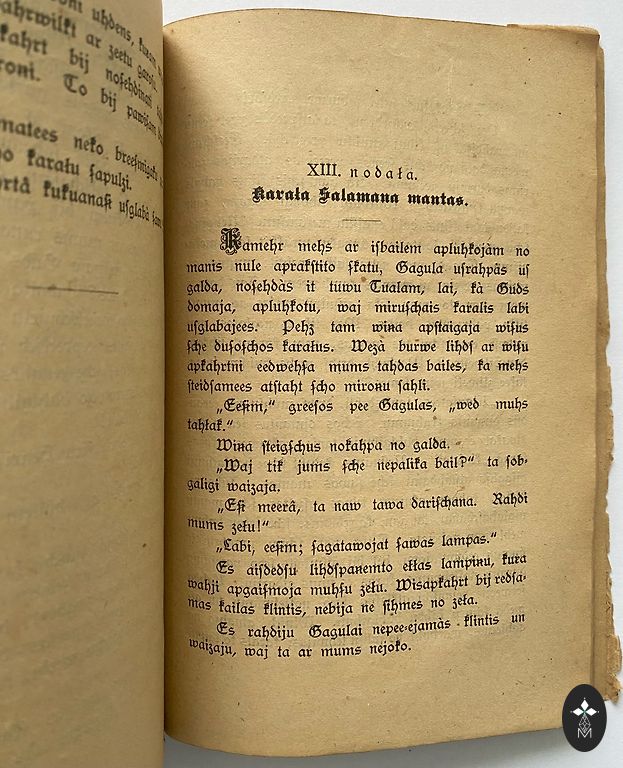 uhdens, kuŗam
pahrwilkt ar zeetu garoſu.
apkahrt bij noſehdinati
mironi. To bij pawiſam
neko breeſmigaku
no karaļu ſapulzi.
kukuanaſi uſglabà ſawus
XIII. nodaļa.
Karaļa Salamana mantas.
Kamehr mehs ar iſbailem apluhkojàm no
manis nule aprakſtito ſkatu, Gagula uſrahpàs uſ
galda, noſehdàs it tuwu Tualam, lai, kà Guds
domaja, apluhkotu, waj miruſchais karalis labi
uſglabajees. Pehz tam wiņa apſtaigaja wiſus
ſche duſoſchos karaļus. Wezà burwe lihdſ ar wiſu
apkahrtni eedwehſa mums tahdas bailes, ka mehs
ſteidſamees atſtaht ſcho mironu ſahli.
„Eeſim,“ greeſos pee Gagulas, „wed muhs
tahļak.“
Wiņa ſteigſchus nokahpa no galda.
„Waj tik jums ſche nepalika bail?“ ta ſob-
galigi waizaja.
„Eſi meerâ, ta naw tawa dariſchana. Rahdi
mums zeļu!“
„Labi, eeſim; ſagatawojat ſawas lampas.“
Es aiſdedſu lihdſpaņemto eļļas lampiņu, kuŗa
wahji apgaiſmoja muhſu zeļu. Wiſapkahrt bij redſa-
mas kailas klintis, nebija ne ſihmes no zeļa.
Es rahdiju Gagulai nepee-ejamàs klintis un
waizaju, waj ta ar mums nejoko.
M